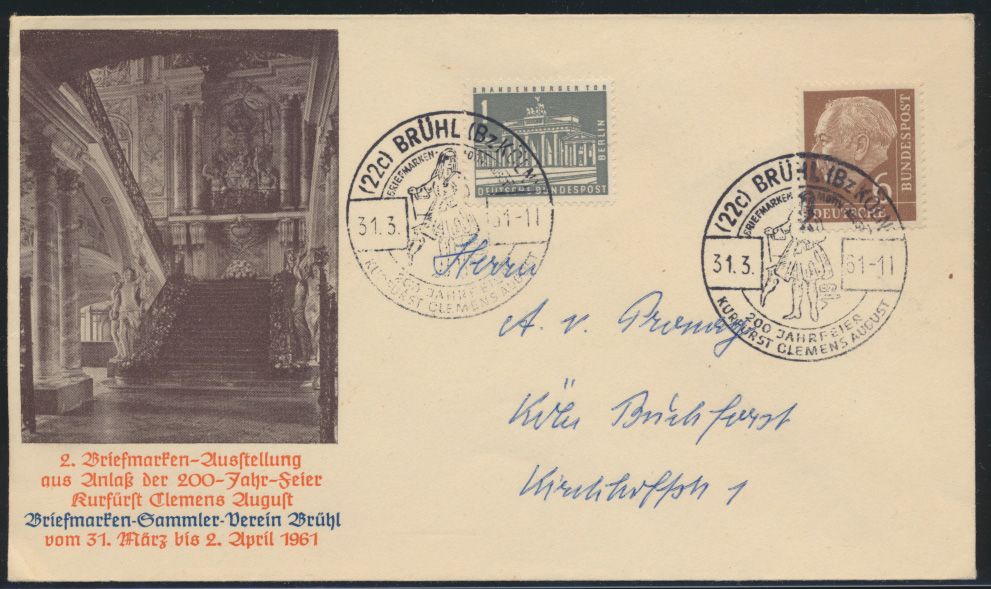 BRANDENBURGER TOR
1
BERLIN
DEUTSCHE BUNDESPOST
BUNDESPOST
6
DEUTSCHE
(22c) BRÜHL (Bz. KÖLN)
BRIEFMARKEN-
31.3. 61-11
200 JAHRFEIER
KURFÜRST CLEMENS AUGUST
(22c) BRÜHL (Bz. KÖLN)
BRIEFMARKEN-
31.3. 61-11
200 JAHRFEIER
KURFÜRST CLEMENS AUGUST
Herrn
A. v.
Köln Buchforst
1
2. Briefmarken-Ausstellung
aus Anlaß der 200-Jahr-Feier
Kurfürst Clemens August
Briefmarken-Sammler-Verein Brühl
vom 31. März bis 2. April 1961